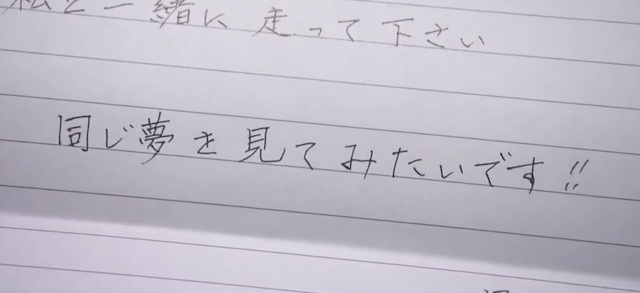 私と一緒に走って下さい
同じ夢を見てみたいです!!